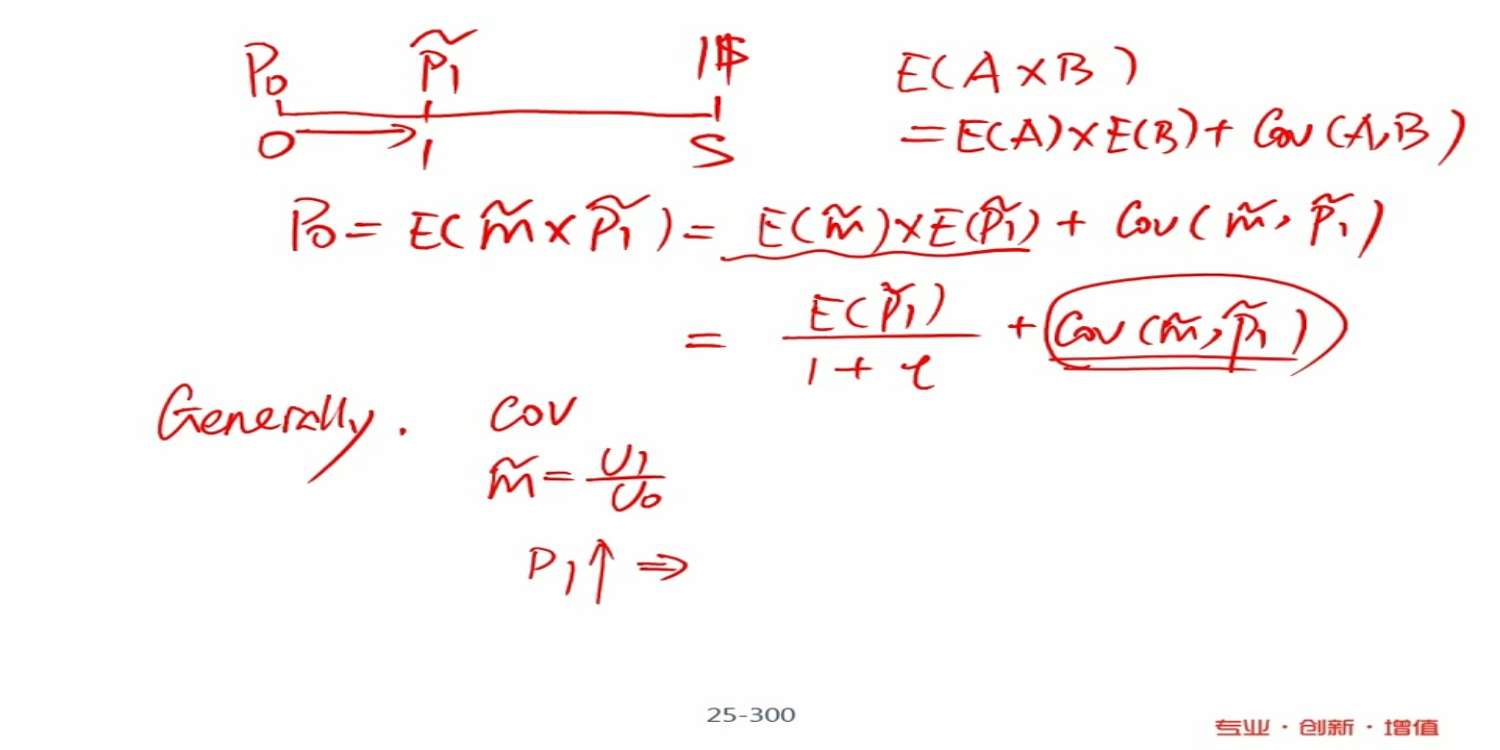 P₀ P̃₁ 1$
0 1 S
E(A×B)
=E(A)×E(B)+Cov(A,B)
P₀=E(m̃×P̃₁)=E(m̃)×E(P̃₁)+Cov(m̃,P̃₁)
=E(P̃₁)/(1+r)+Cov(m̃,P̃₁)
Generally. cov
m̃=U₁/U₀
P₁↑⇒
25-300
专业·创新·增值